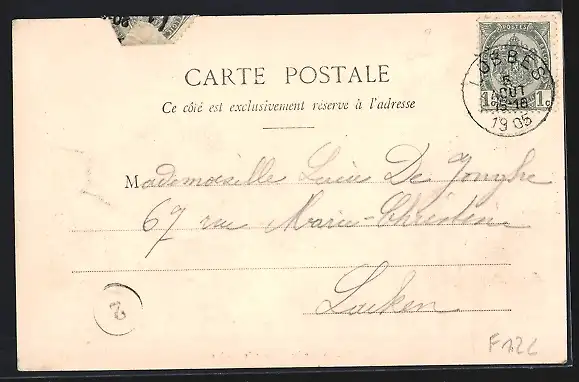 POSTES
LOBBES
5
AOUT
15-18
1905
1c 1c
CARTE POSTALE
Ce côté est exclusivement réservé à l'adresse
Mademoiselle De Jonghe
67 rue Marie-Christine
Laeken
2
F12C